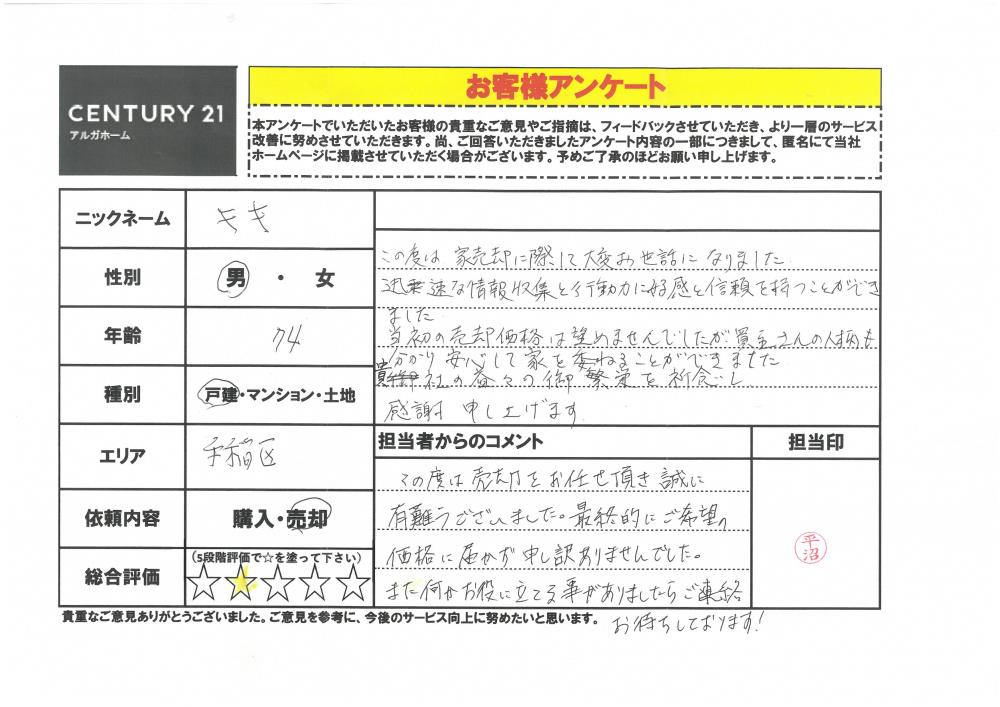 CENTURY 21
アルガホーム
お客様アンケート
本アンケートでいただいたお客様の貴重なご意見やご指摘は、フィードバックさせていただき、より一層のサービス
改善に努めさせていただきます。尚、ご回答いただきましたアンケート内容の一部につきまして、匿名にて当社
ホームページに掲載させていただく場合がございます。予めご了承のほどお願い申し上げます。
ニックネーム
キキ
性別
男・女
年齢
74
種別
戸建・マンション・土地
エリア
手稲区
依頼内容
購入・売却
総合評価
(5段階評価で☆を塗って下さい)
☆☆☆☆☆
この度は 家売却に際して大変お世話になりました
迅速な情報収集と行動力に好感と信頼を持つことができ
ました
当初の売却価格は望めませんでしたが買主さんの人柄も
分かり 安心して家を委ねることができました
貴社の益々の御繁栄を祈念し
感謝 申し上げます
担当者からのコメント
担当印
この度は売却をお任せ頂き誠に
有難うございました。最終的にご希望の
価格に届かず申し訳ありませんでした。
また何かお役に立てる事がありましたらご連絡
お待ちしております!
平沼
貴重なご意見ありがとうございました。ご意見を参考に、今後のサービス向上に努めたいと思います。